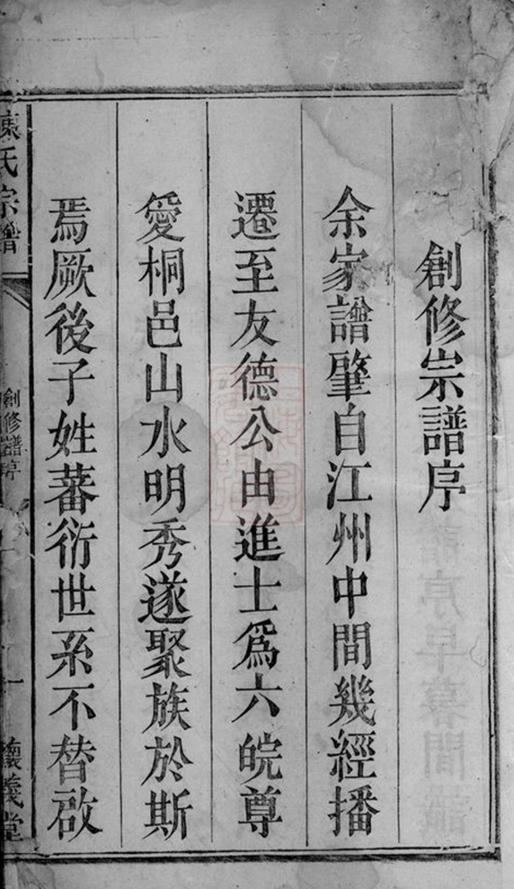 創修宗譜序
余家譜肇自江州中間幾經播
遷至友德公由進士爲六皖尊
愛桐邑山水明秀遂聚族於斯
焉厥後子姓蕃衍世系不替啟
氏宗譜
創修譜序
一
義堂